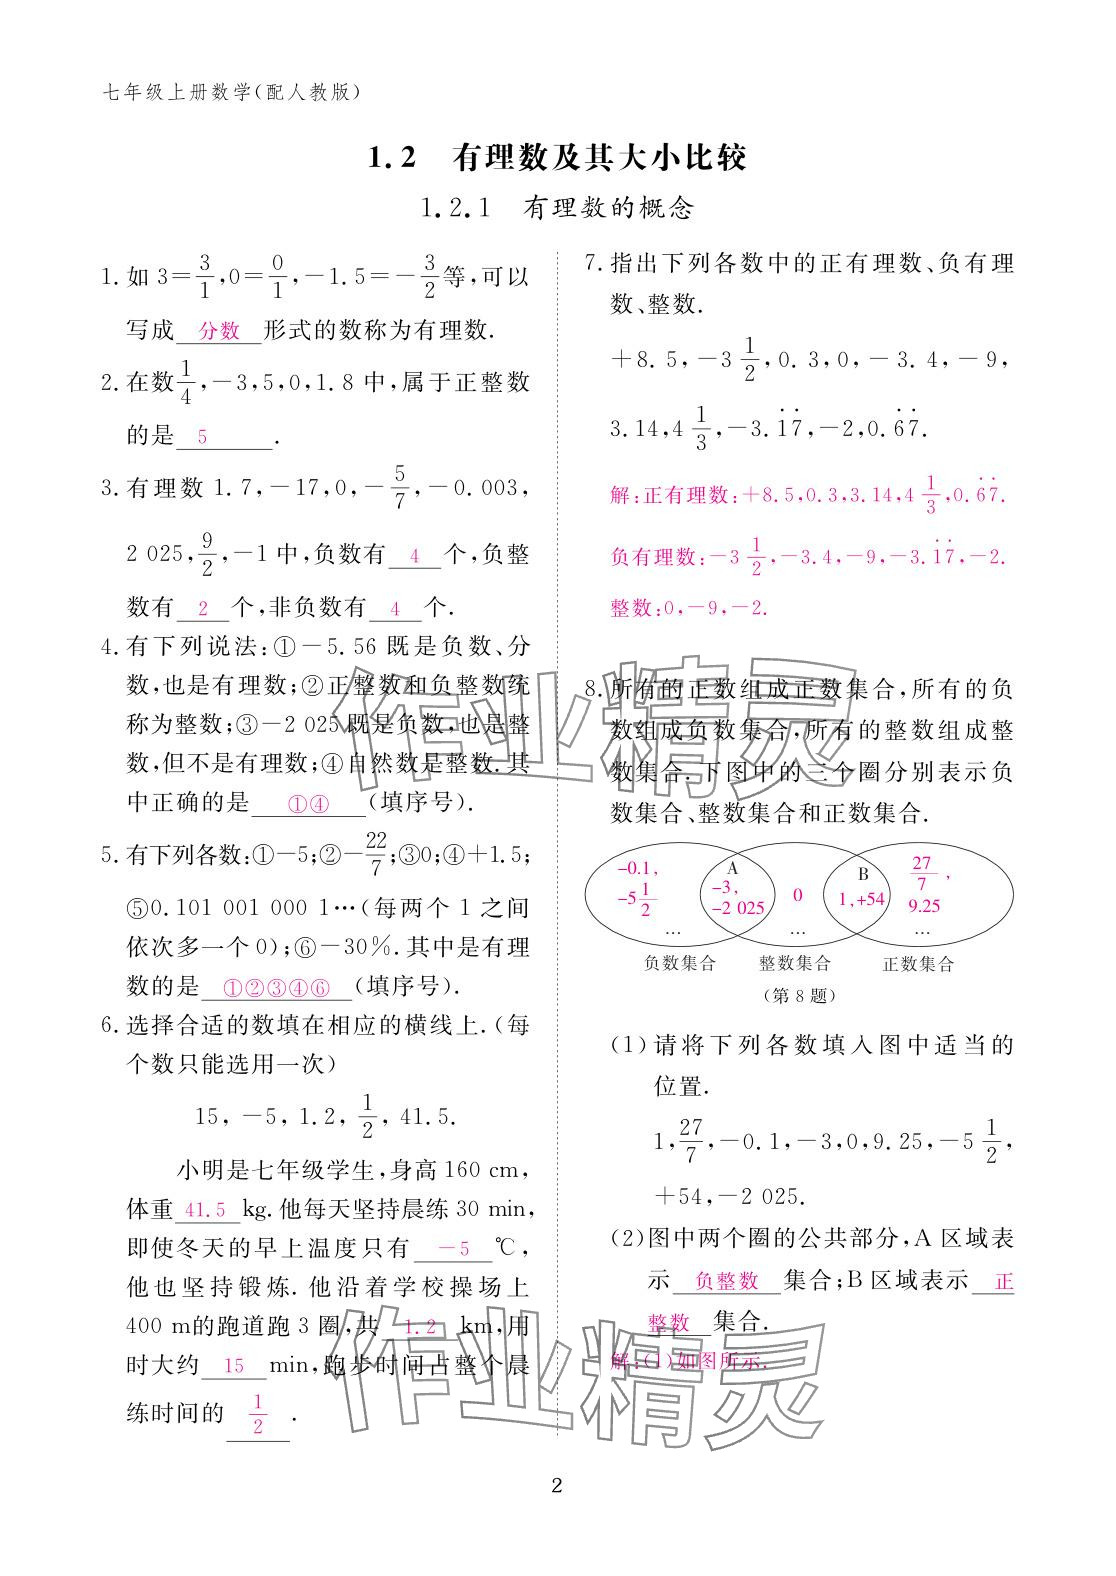 七年级上册数学(配人教版)
1.2 有理数及其大小比较
1.2.1 有理数的概念
1. 如 3=3/1,0=0/1,-1.5=-3/2等,可以
写成 分数 形式的数称为有理数.
2. 在数1/4,-3,5,0,1.8 中,属于正整数
的是 5 .
3. 有理数 1.7,-17,0,-5/7,-0.003,
2 025,9/2,-1 中,负数有 4 个,负整
数有 2 个,非负数有 4 个.
4. 有下列说法:①-5.56 既是负数、分
数,也是有理数;②正整数和负整数统
称为整数;③-2 025 既是负数,也是整
数,但不是有理数;④自然数是整数.其
中正确的是 ①④ (填序号).
5. 有下列各数:①-5;②-22/7;③0;④+1.5;
⑤0.101 001 000 1…(每两个 1 之间
依次多一个 0);⑥-30%.其中是有理
数的是 ①②③④⑥ (填序号).
6. 选择合适的数填在相应的横线上.(每
个数只能选用一次)
15, -5, 1.2, 1/2, 41.5.
小明是七年级学生,身高 160 cm,
体重 41.5 kg.他每天坚持晨练 30 min,
即使冬天的早上温度只有 -5 ℃,
他也坚持锻炼.他沿着学校操场上
400 m的跑道跑 3 圈,共 1.2 km,用
时大约 15 min,跑步时间占整个晨
练时间的 1/2 .
7. 指出下列各数中的正有理数、负有理
数、整数.
+8.5,-3 1/2,0.3,0,-3.4,-9,
3.14,4 1/3,-3.1̇7̇,-2,0.6̇7̇.
解:正有理数:+8.5,0.3,3.14,4 1/3,0.6̇7̇.
负有理数:-3 1/2,-3.4,-9,-3.1̇7̇,-2.
整数:0,-9,-2.
8. 所有的正数组成正数集合,所有的负
数组成负数集合,所有的整数组成整
数集合.下图中的三个圈分别表示负
数集合、整数集合和正数集合.
-0.1,
-5 1/2
…
A
-3,
-2 025
0
…
B
1,+54
27/7,
9.25
…
负数集合 整数集合 正数集合
(第 8 题)
(1)请将下列各数填入图中适当的
位置.
1,27/7,-0.1,-3,0,9.25,-5 1/2,
+54,-2 025.
(2)图中两个圈的公共部分,A 区域表
示 负整数 集合;B 区域表示 正
整数 集合.
解:(1)如图所示.
作业精灵
作业精灵
2